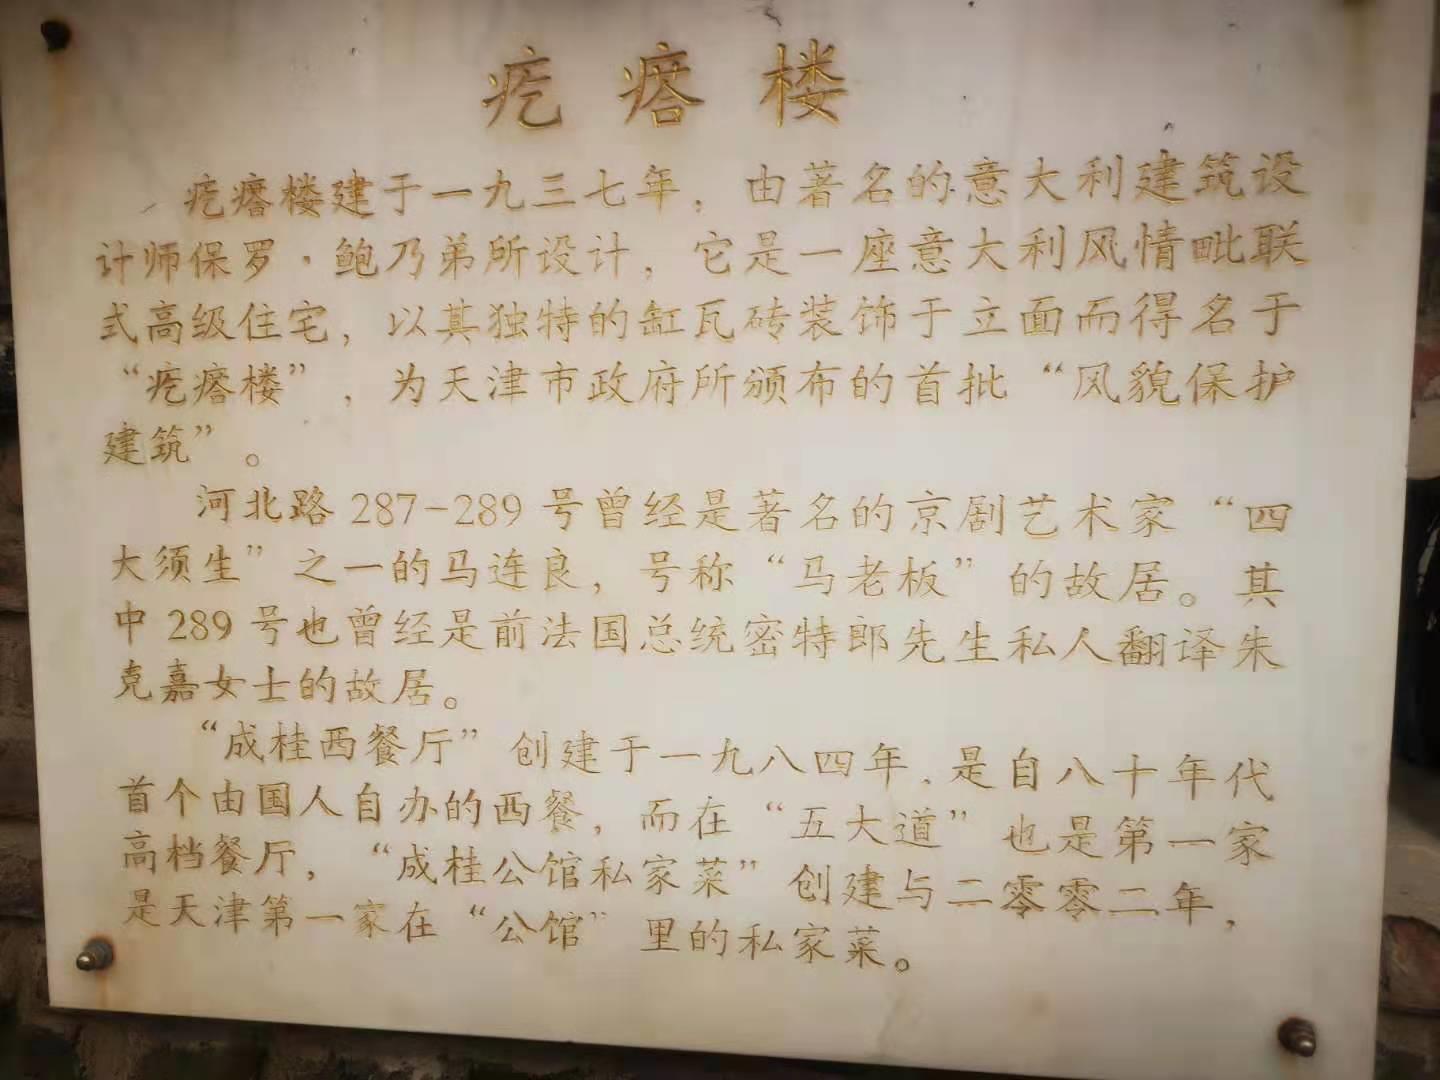 疙瘩楼
疙瘩楼建于一九三七年，由著名的意大利建筑设
计师保罗·鲍乃弟所设计，它是一座意大利风情毗联
式高级住宅，以其独特的缸瓦砖装饰于立面而得名于
“疙瘩楼”，为天津市政府所颁布的首批“风貌保护
建筑”。
河北路287-289号曾经是著名的京剧艺术家“四
大须生”之一的马连良，号称“马老板”的故居。其
中289号也曾经是前法国总统密特郎先生私人翻译朱
克嘉女士的故居。
“成桂西餐厅”创建于一九八四年，是自八十年代
首个由国人自办的西餐，而在“五大道”也是第一家
高档餐厅，“成桂公馆私家菜”创建与二零零二年，
是天津第一家在“公馆”里的私家菜。